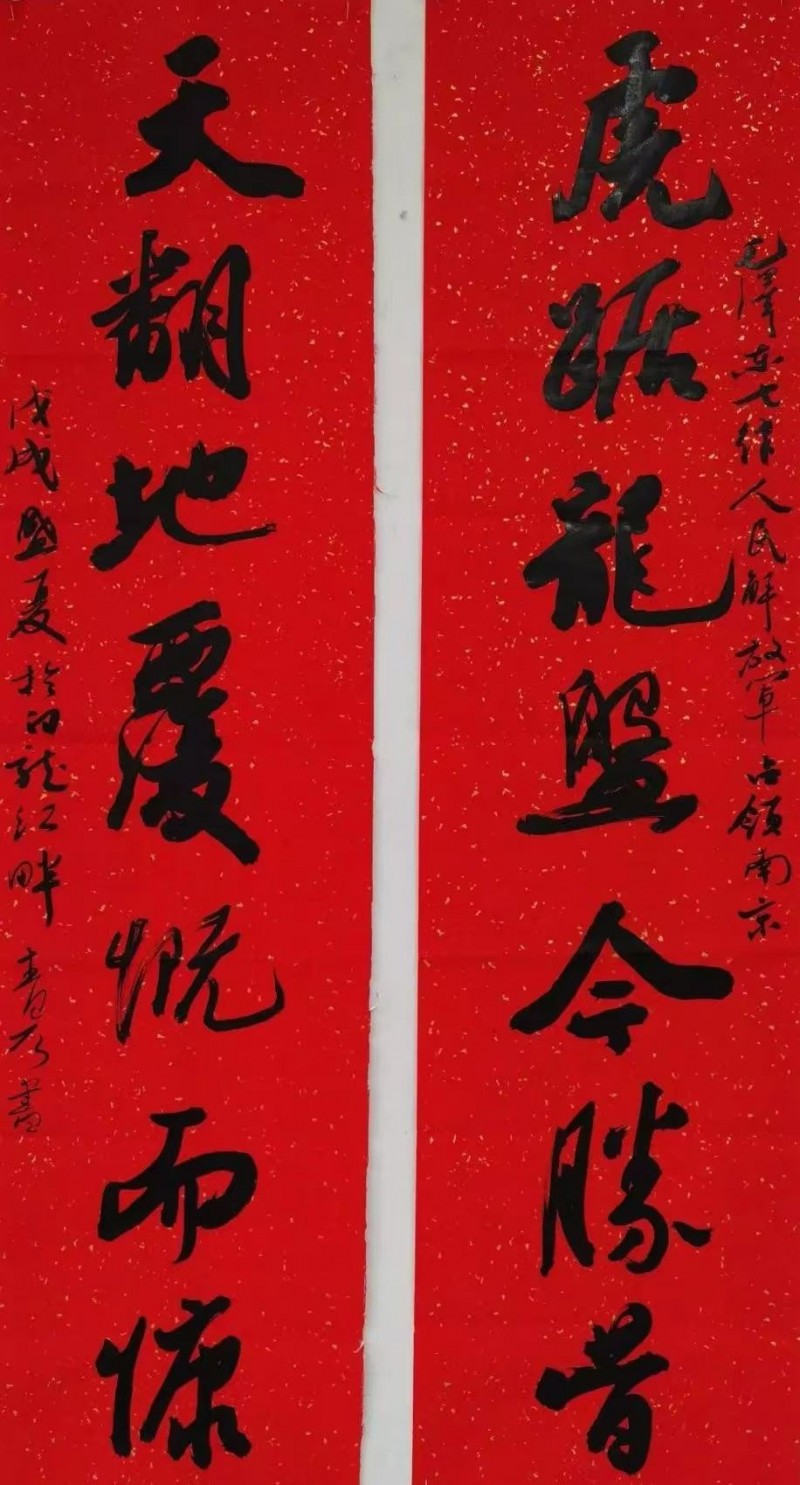 毛澤东七律人民解放軍占领南京
虎踞龍盤今勝昔
天翻地覆慨而慷
戊戌盛夏於白龙江畔 書